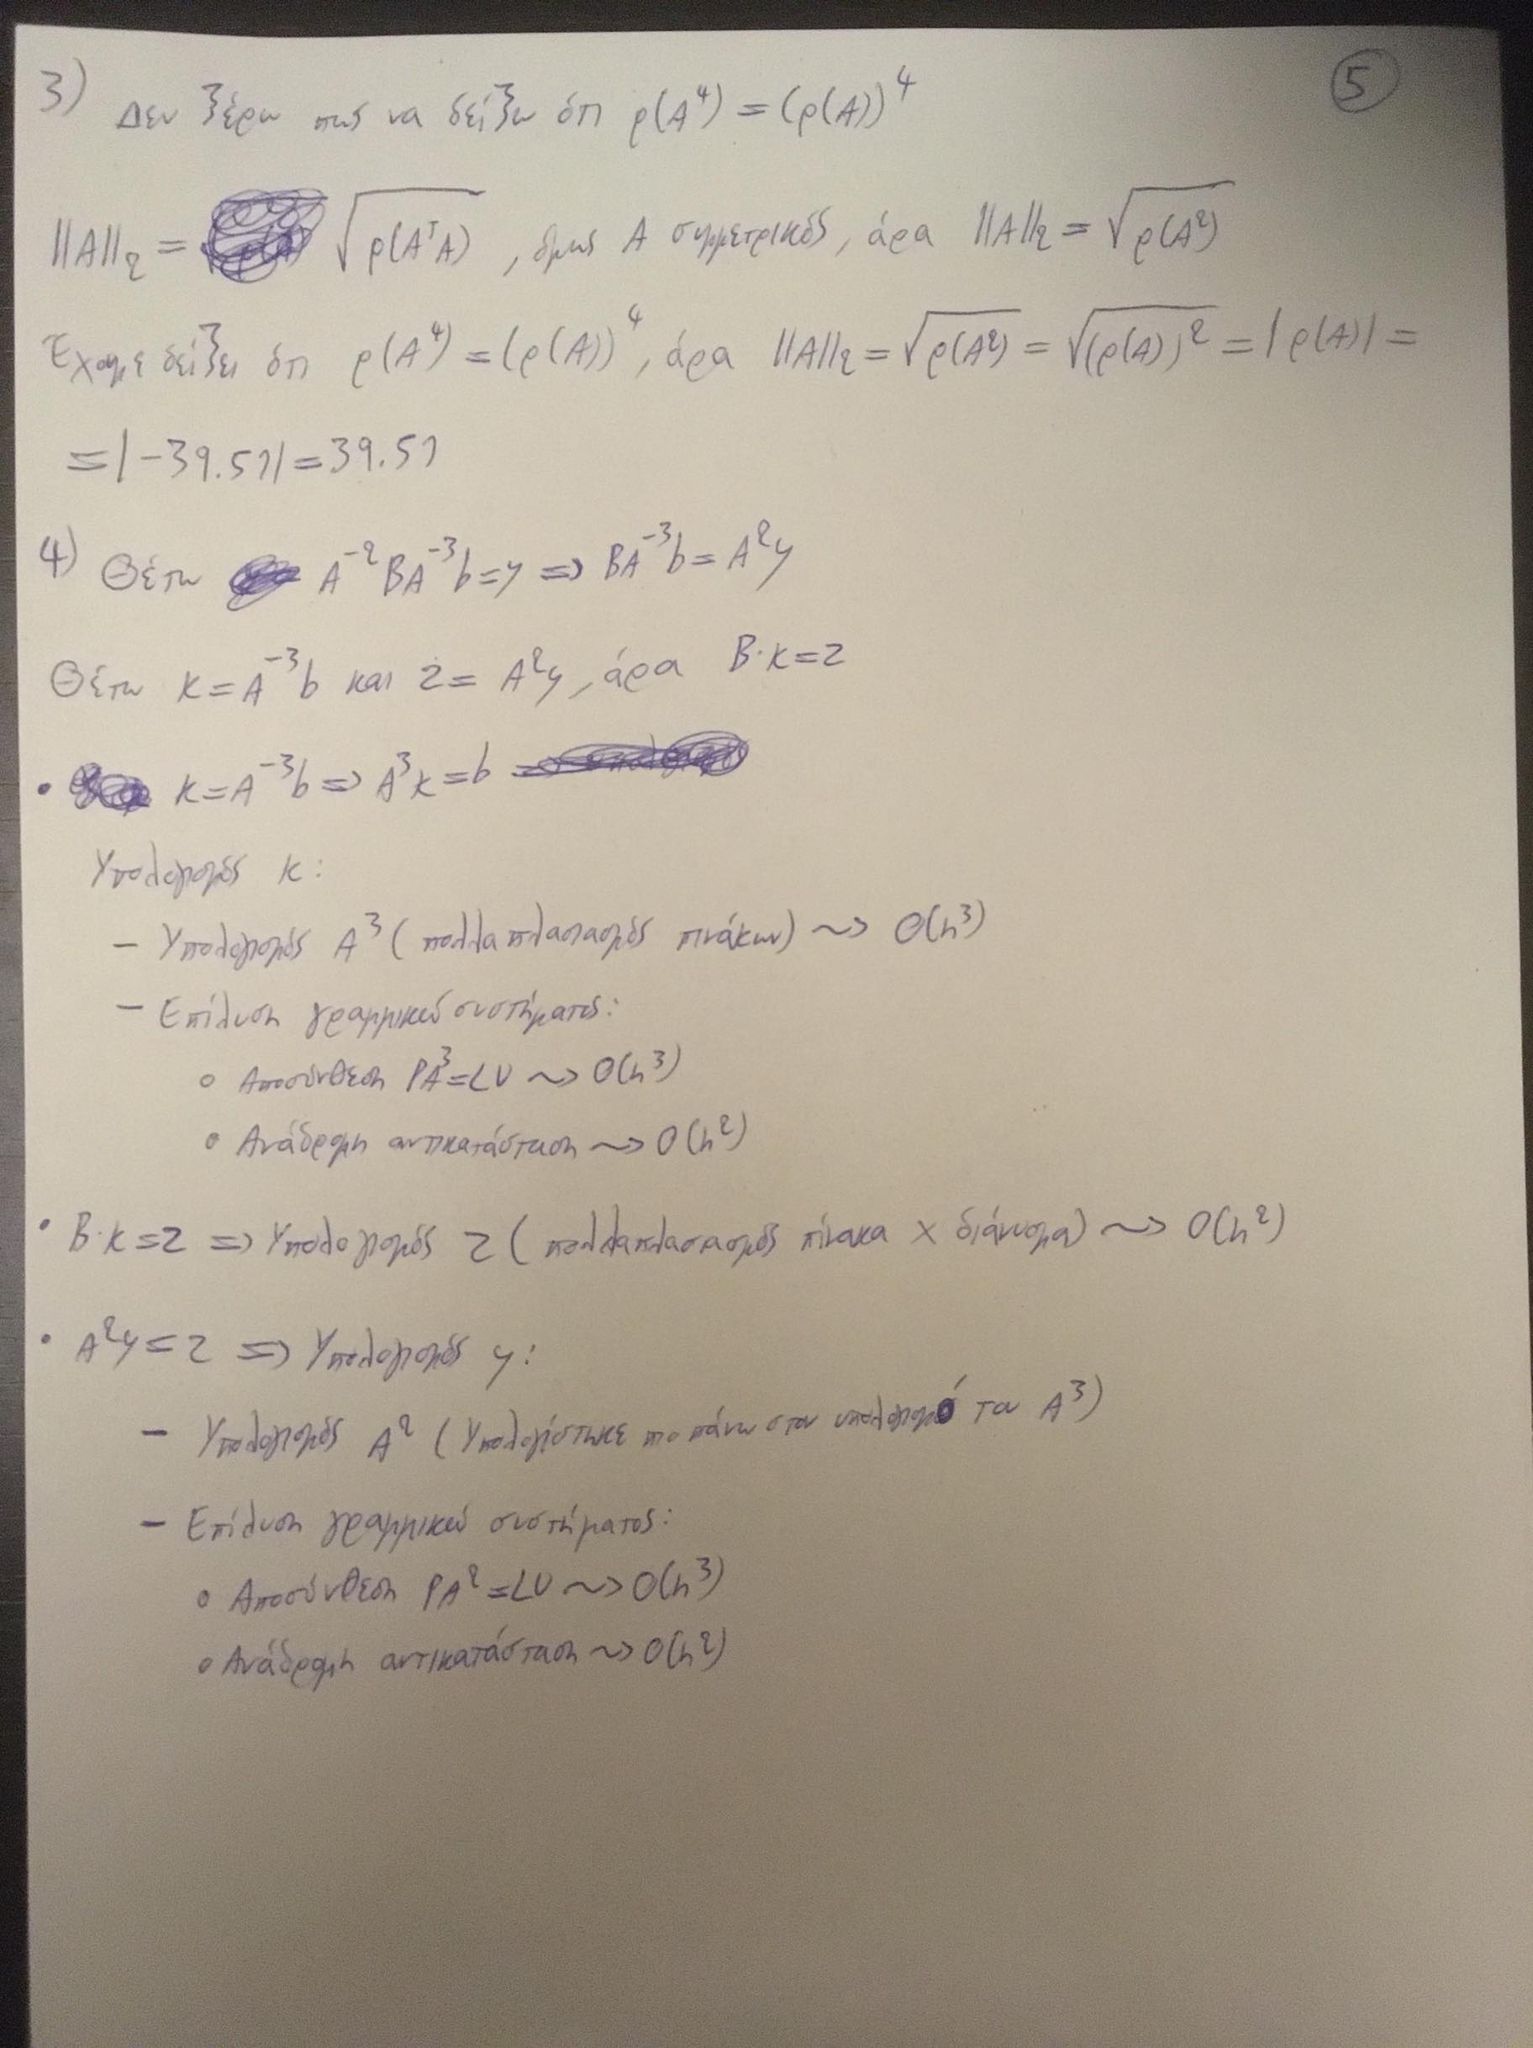 5
3) Δεν ξέρω πως να δείξω ότι ρ(A⁴) = (ρ(A))⁴
||A||₂ = √ρ(AᵀA) , όμως A συμμετρικός, άρα ||A||₂ = √ρ(A²)
Έχουμε δείξει ότι ρ(A⁴) = (ρ(A))⁴, άρα ||A||₂ = √ρ(A²) = √(ρ(A))² = |ρ(A)| =
= |-39.51| = 39.51
4) Θέτω A⁻²BA⁻³b = y => BA⁻³b = A²y
Θέτω κ = A⁻³b και z = A²y, άρα B·κ = z
• κ = A⁻³b => A³κ = b
Υπολογισμός κ:
- Υπολογισμός A³ (πολλαπλασιασμός πινάκων) ~> O(n³)
- Επίλυση γραμμικού συστήματος:
∘ Αποσύνθεση PA³ = LU ~> O(n³)
∘ Ανάδρομη αντικατάσταση ~> O(n²)
• B·κ = z => Υπολογισμός z (πολλαπλασιασμός πίνακα × διάνυσμα) ~> O(n²)
• A²y = z => Υπολογισμός y:
- Υπολογισμός A² (Υπολογίστηκε πιο πάνω στον υπολογισμό του A³)
- Επίλυση γραμμικού συστήματος:
∘ Αποσύνθεση PA² = LU ~> O(n³)
∘ Ανάδρομη αντικατάσταση ~> O(n²)